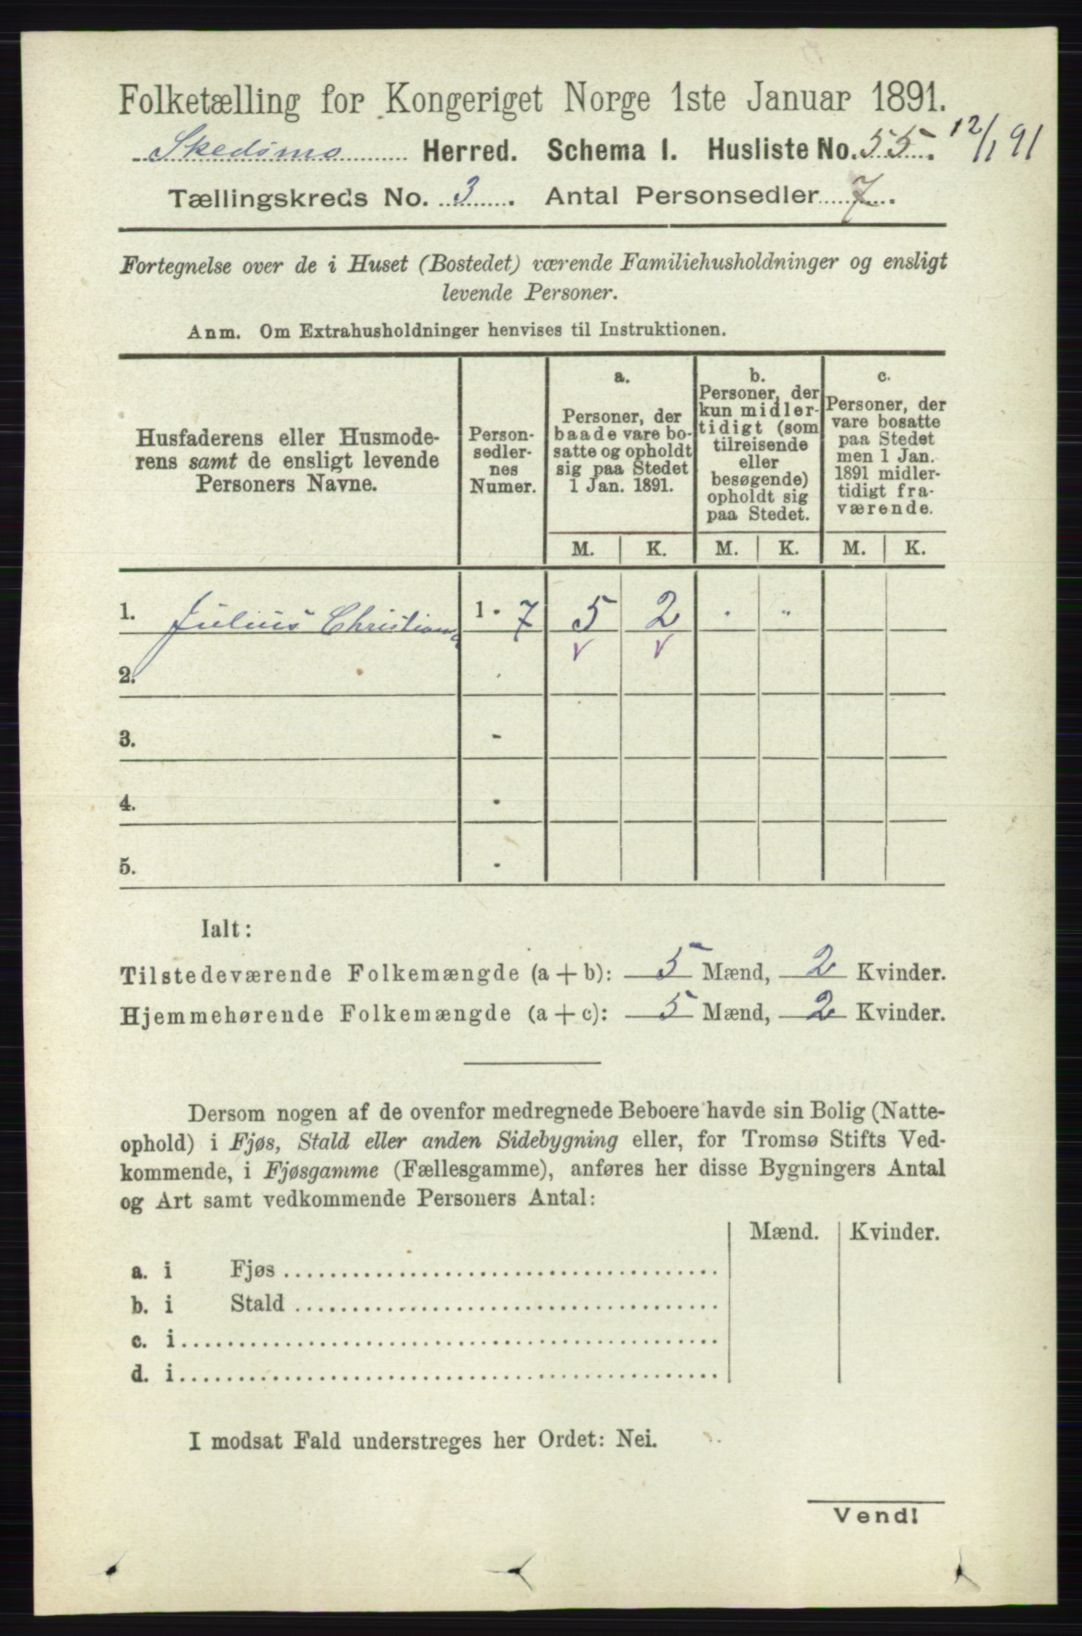 Folketælling for Kongeriget Norge 1ste Januar 1891.
Skedsmo Herred. Schema I. Husliste No. 55. 12/1 91
Tællingskreds No. 3. Antal Personsedler 7.
Fortegnelse over de i Huset (Bostedet) værende Familiehusholdninger og ensligt
levende Personer.
Anm. Om Extrahusholdninger henvises til Instruktionen.
Husfaderens eller Husmode-
rens samt de ensligt levende
Personers Navne.
Person-
sedler-
nes
Numer.
a.
Personer, der
baade vare bo-
satte og opholdt
sig paa Stedet
1 Jan. 1891.
b.
Personer, der
kun midler-
tidigt (som
tilreisende
eller
besøgende)
opholdt sig
paa Stedet.
c.
Personer, der
vare bosatte
paa Stedet
men 1 Jan.
1891 midler-
tidigt fra-
værende.
M. K. M. K. M. K.
1. Julius 1 - 7 5 2
2.
3. -
4. -
5. -
Ialt:
Tilstedeværende Folkemængde (a + b): 5 Mænd, 2 Kvinder.
Hjemmehørende Folkemængde (a + c): 5 Mænd, 2 Kvinder.
Dersom nogen af de ovenfor medregnede Beboere havde sin Bolig (Natte-
ophold) i Fjøs, Stald eller anden Sidebygning eller, for Tromsø Stifts Ved-
kommende, i Fjøsgamme (Fællesgamme), anføres her disse Bygningers Antal
og Art samt vedkommende Personers Antal:
Mænd. Kvinder.
a. i Fjøs
b. i Stald
c. i
d. i
I modsat Fald understreges her Ordet: Nei.
Vend!